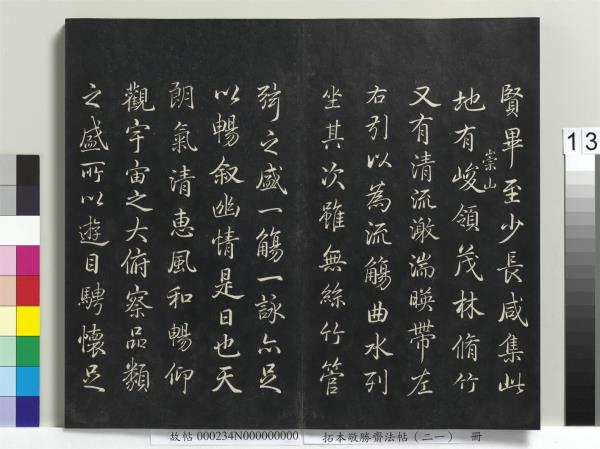 賢畢至少長咸集此
地有崇山峻領茂林脩竹
又有清流激湍暎帶左
右引以為流觴曲水列
坐其次雖無絲竹管
弦之盛一觴一詠亦足
以暢叙幽情是日也天
朗氣清惠風和暢仰
觀宇宙之大俯察品類
之盛所以遊目騁懷足
故帖 000234N000000000 拓本敬勝齋法帖（二一） 冊
13